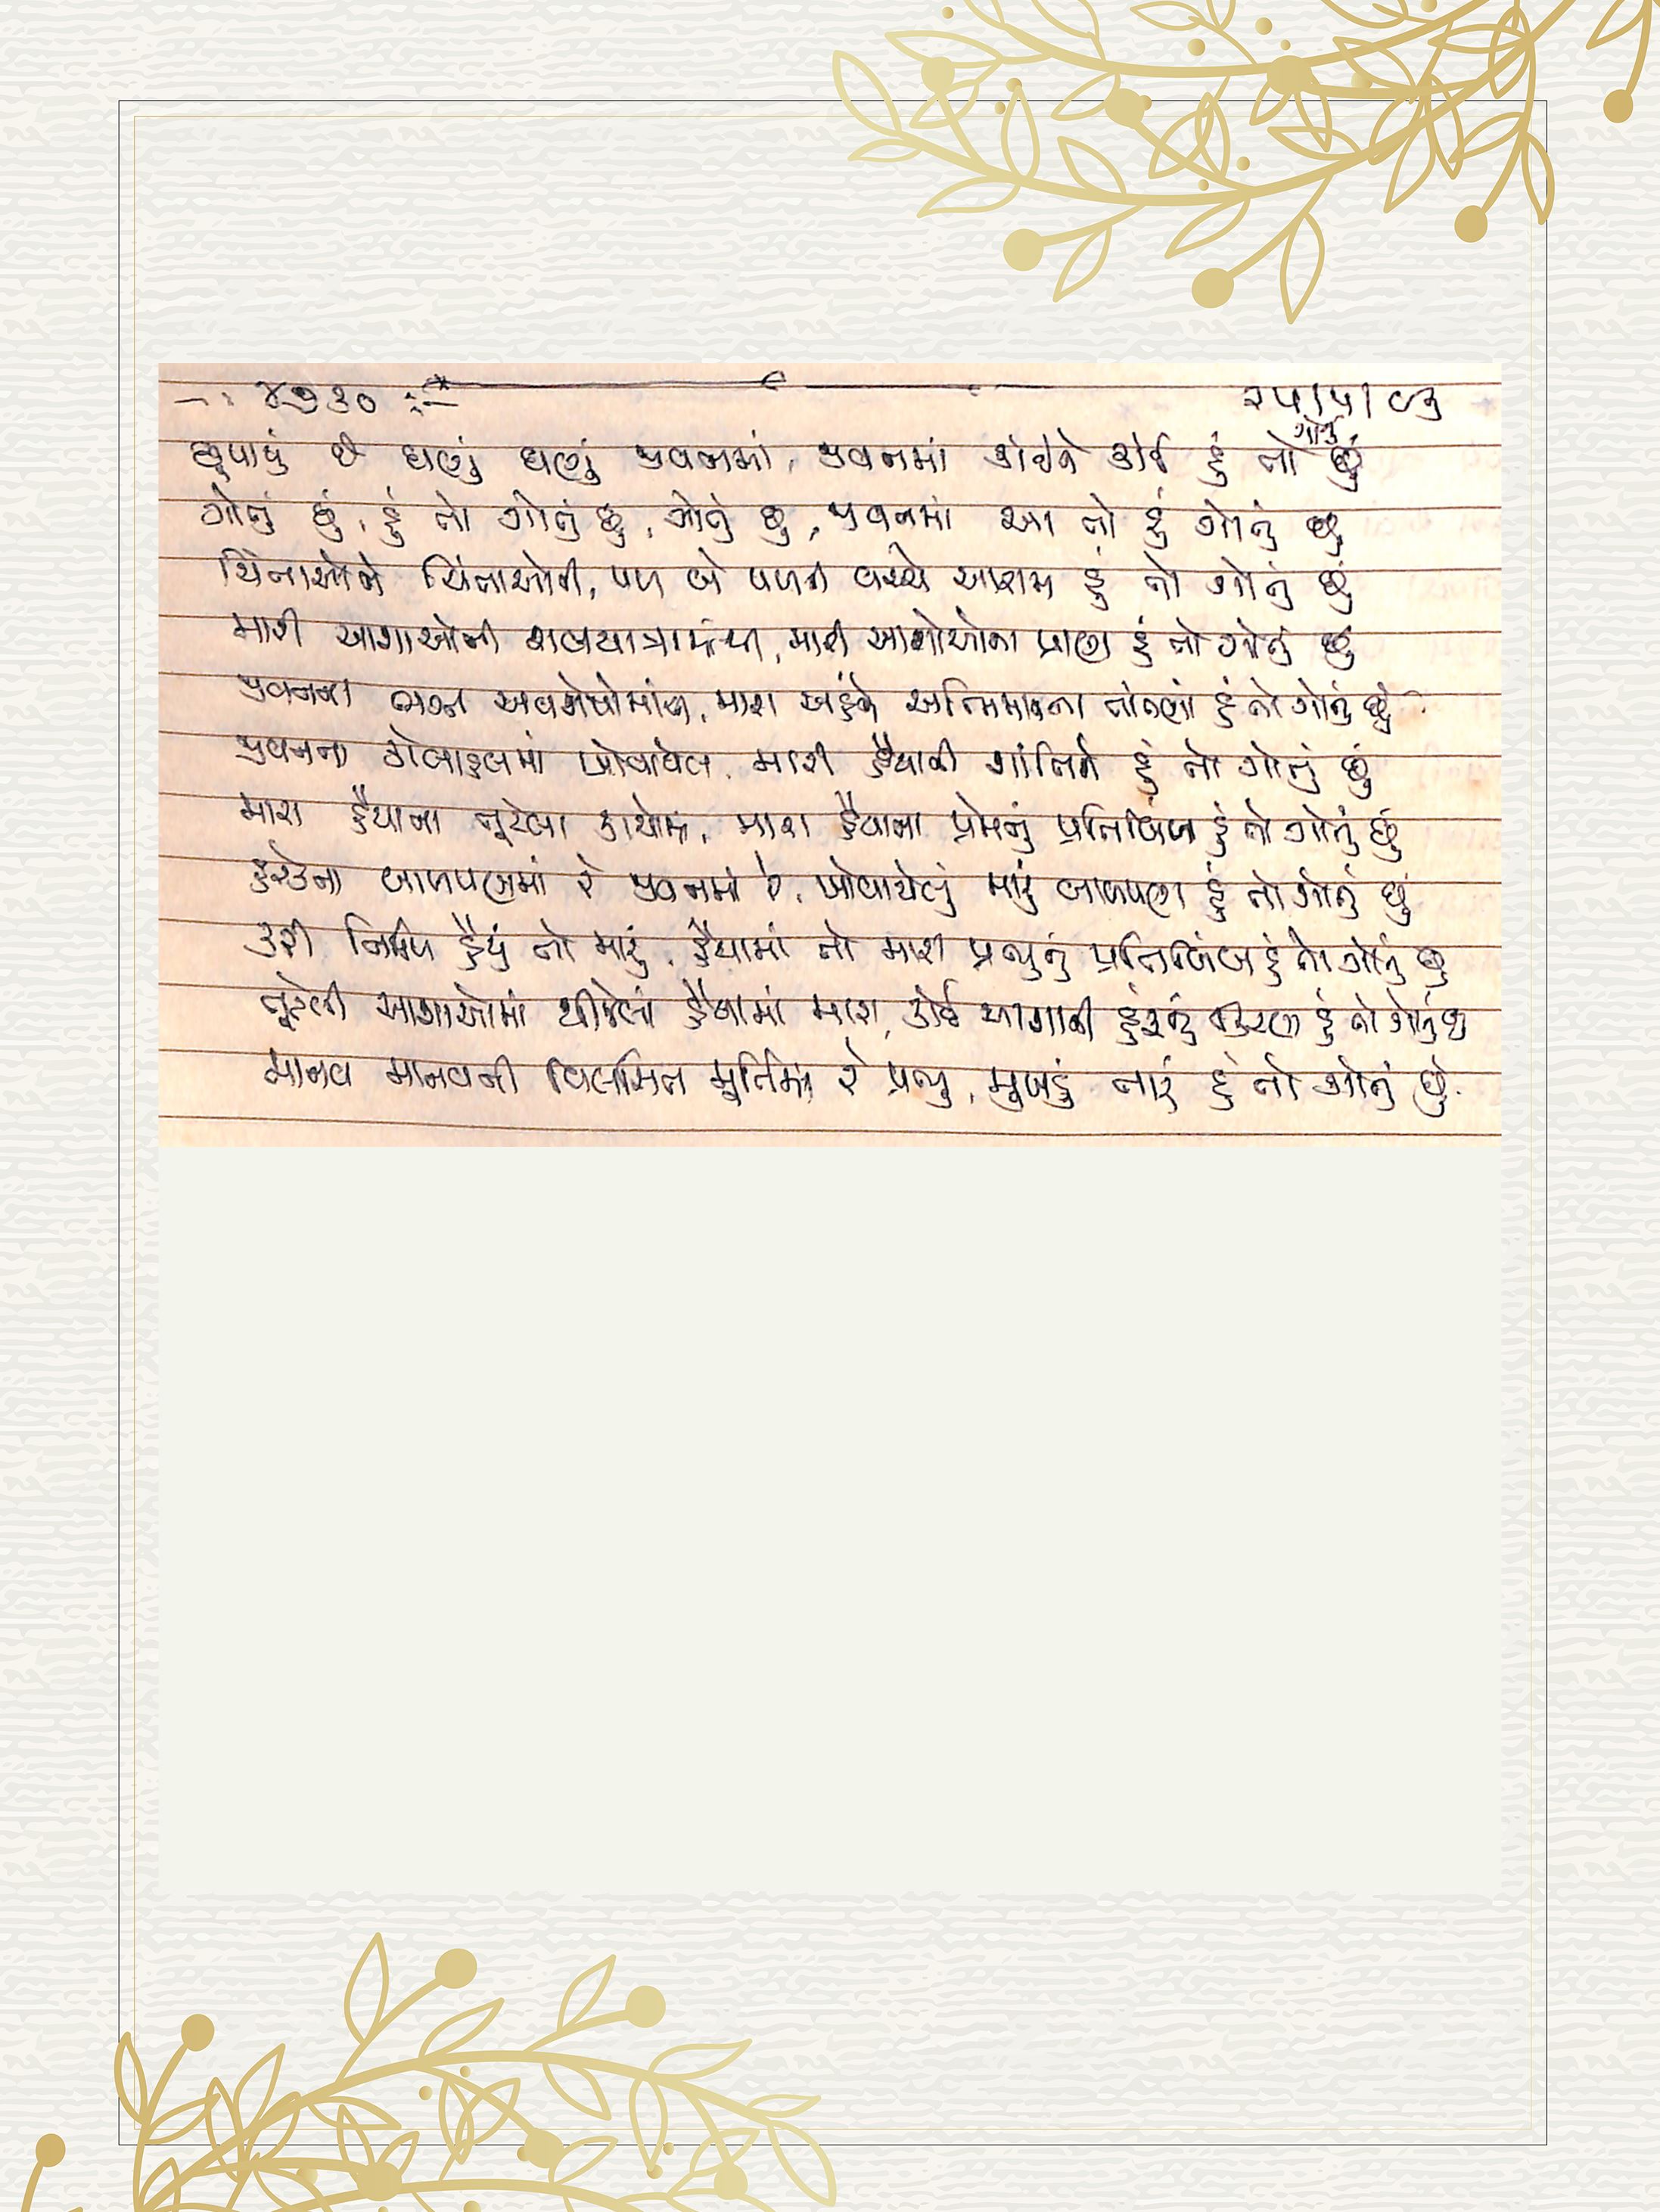 ૪૭૩૦ ૨૫/૫/૯૩
છૂપાયું છે ઘણું ઘણું જીવનમાં, જીવનમાં કાંઈને કાંઈ હું તો ગોતું છું
ગોતું છું, હું તો ગોતું છું, ગોતું છું, જીવનમાં આ તો હું ગોતું છું
ચિંતાઓને ચિંતાઓની, પળ બે પળની વચ્ચે આરામ હું તો ગોતું છું
મારી આશાઓની શબયાત્રામાંથી, મારી આશાઓના પ્રાણ હું તો ગોતું છું
જીવનના ભગ્ન અવશેષોમાંથી, મારા અહંને અભિમાનના તાંતણાં હું તો ગોતું છું
જીવનના કોલાહલમાં ખોવાયેલ, મારી હૈયાની શાંતિને હું તો ગોતું છું
મારા હૈયાના તૂટેલા કાચમાં, મારા હૈયાના પ્રેમનું પ્રતિબિંબ હું તો ગોતું છું
બાળપણમાં રે જીવનમાં રે, ખોવાયેલું મારું બાળપણ હું તો ગોતું છું
કરી નિર્મળ હૈયું તો મારું, હૈયામાં તો મારા પ્રભુનું પ્રતિબિંબ હું તો ગોતું છું
તૂટેલી આશાઓમાં થીજેલાં હૈયામાં મારા, કોઈ આશાની હૂંફનું કિરણ હું તો ગોતું છું
માનવ માનવની વિલસિત મૂર્તિમાં રે પ્રભુ, મુખડું તારું હું તો ગોતું છું.